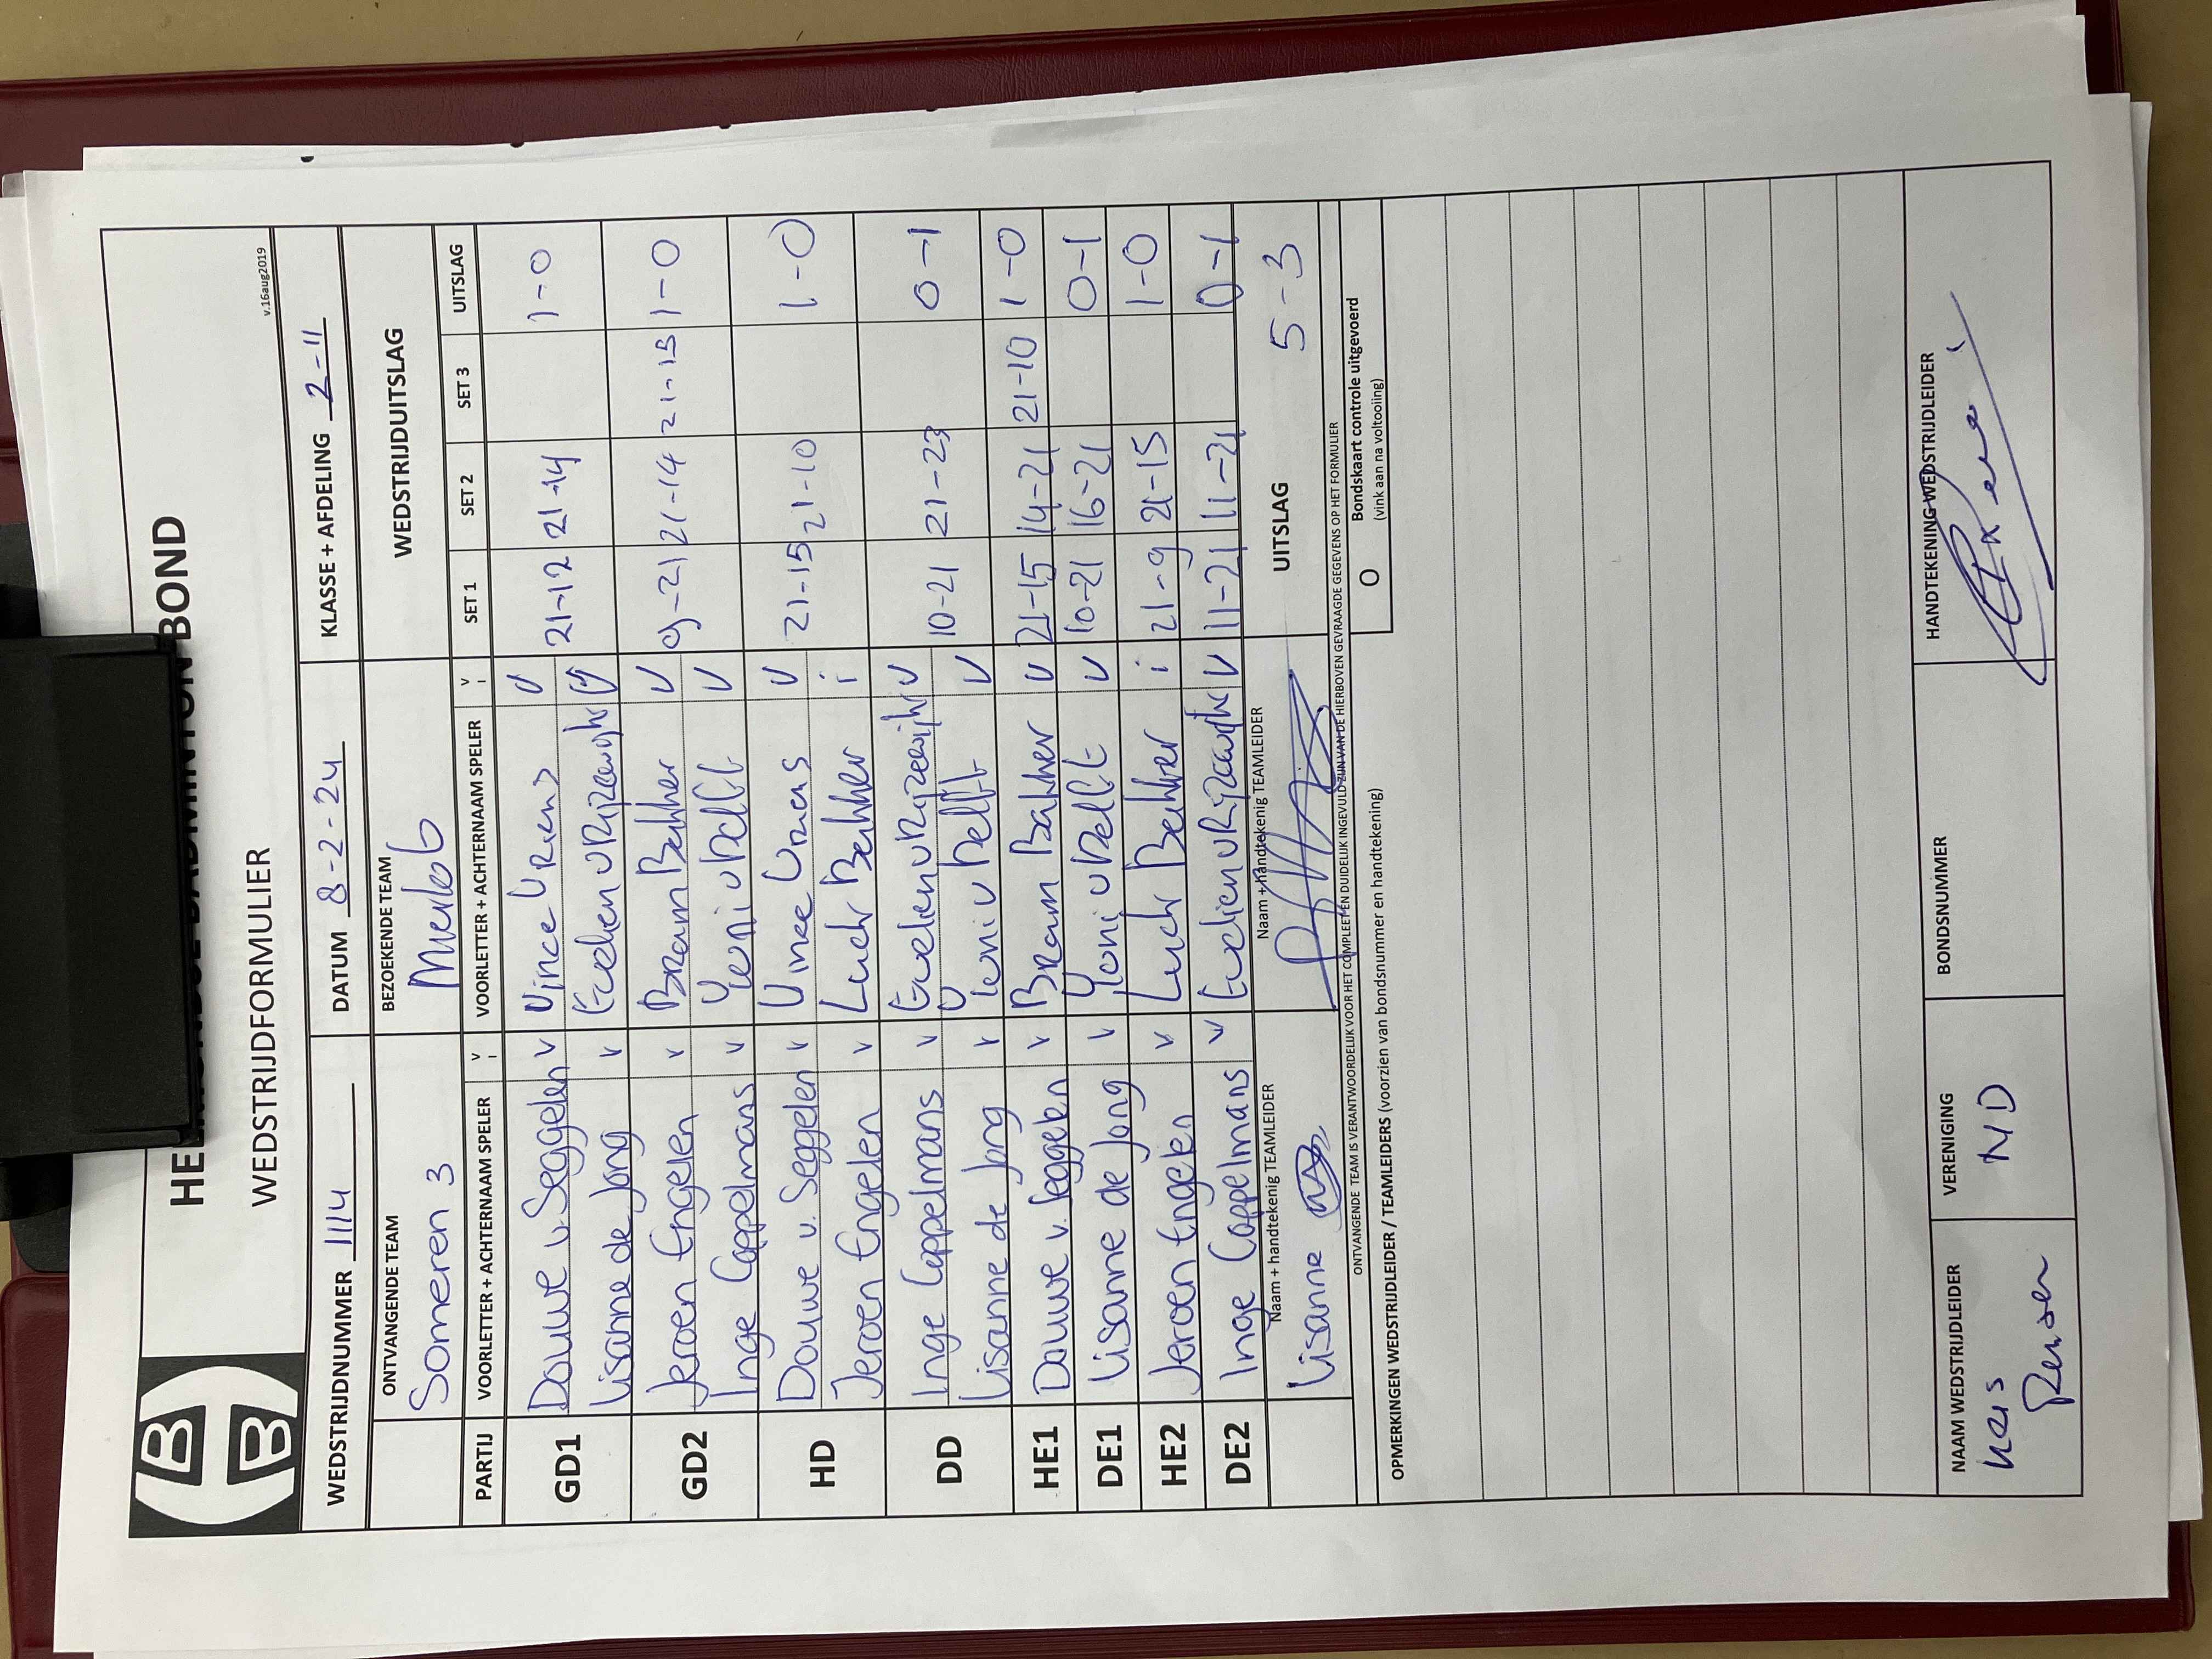 HE
BOND
WEDSTRIJDFORMULIER
v.16aug2019
B
B
WEDSTRIJDNUMMER 1114 DATUM 8-2-24 KLASSE + AFDELING 2-11
ONTVANGENDE TEAM BEZOEKENDE TEAM WEDSTRIJDUITSLAG
Someren 3 Mierlo 6
PARTIJ VOORLETTER + ACHTERNAAM SPELER V I VOORLETTER + ACHTERNAAM SPELER V I SET 1 SET 2 SET 3 UITSLAG
GD1 Douwe v. Seggelen v Vince v 21-12 21-14 1-0
Lisanne de Jong v v
GD2 Jeroen Engelen v Bram Bakker v 9-21 21-14 21-15 1-0
Inge Coppelmans v v
HD Douwe v. Seggelen v Vince v 21-15 21-10 1-0
Jeroen Engelen v Bakker i
DD Inge Coppelmans v v 10-21 21-23 0-1
Lisanne de Jong v v
HE1 Douwe v. Seggelen v Bram Bakker v 21-15 14-21 21-10 1-0
DE1 Lisanne de Jong v v 10-21 16-21 0-1
HE2 Jeroen Engelen v Bakker i 21-9 21-15 1-0
DE2 Inge Coppelmans v v 11-21 11-21 0-1
Naam + handtekenig TEAMLEIDER Naam + handtekenig TEAMLEIDER UITSLAG 5-3
Lisanne
ONTVANGENDE TEAM IS VERANTWOORDELIJK VOOR HET COMPLEET EN DUIDELIJK INGEVULD ZIJN VAN DE HIERBOVEN GEVRAAGDE GEGEVENS OP HET FORMULIER
O Bondskaart controle uitgevoerd
(vink aan na voltooiing)
OPMERKINGEN WEDSTRIJDLEIDER / TEAMLEIDERS (voorzien van bondsnummer en handtekening)
NAAM WEDSTRIJDLEIDER VERENIGING BONDSNUMMER HANDTEKENING WEDSTRIJDLEIDER
ND